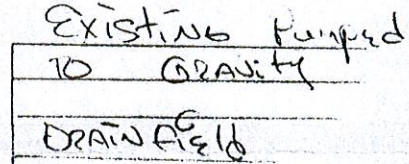 Existing Pumped
TO GRAVITY
DRAINFIELD